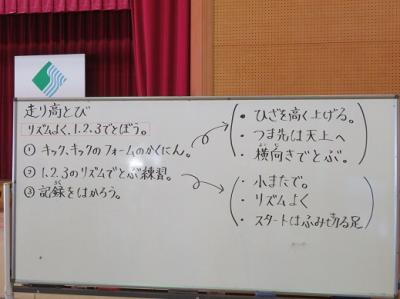 走り高とび
リズムよく、1.2.3でとぼう。
① キック、キックのフォームのかくにん。
② 1.2.3のリズムでとぶ練習。
③ 記録をはかろう。
・ひざを高く上げる。
・つま先は天上へ
・横向きでとぶ。
・小またで。
・リズムよく
・スタートはふみ切る足